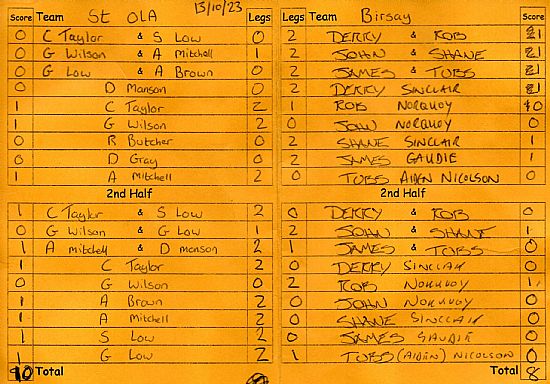 Score Team St OLA 13/10/23 Legs Legs Team Birsay Score
0 C Taylor & S Low 0 2 DERRY & ROB 1
0 G Wilson & A Mitchell 1 2 JOHN & SHANE 1
0 G Low & A Brown 0 2 JAMES & TUBS 1
0 D Manson 0 2 DERRY SINCLAIR 1
1 C Taylor 2 1 ROB NORQUOY 0
1 G Wilson 2 0 JOHN NORQUOY 0
0 R Butcher 0 2 SHANE SINCLAIR 1
0 D Gray 0 2 JAMES GAUDIE 1
1 A Mitchell 2 0 TUBS AIDEN NICOLSON 0
2nd Half 2nd Half
1 C Taylor & S Low 2 0 DERRY & ROB 0
0 G Wilson & G Low 1 2 JOHN & SHANE 1
1 A Mitchell & D Manson 2 1 JAMES & TUBS 0
1 C Taylor 2 0 DERRY SINCLAIR 0
0 G Wilson 0 2 ROB NORQUOY 1
1 A Brown 2 0 JOHN NORQUOY 0
1 A Mitchell 2 0 SHANE SINCLAIR 0
1 S Low 2 0 JAMES GAUDIE 0
1 G Low 2 1 TUBS (AIDEN) NICOLSON 0
10 Total Total 8